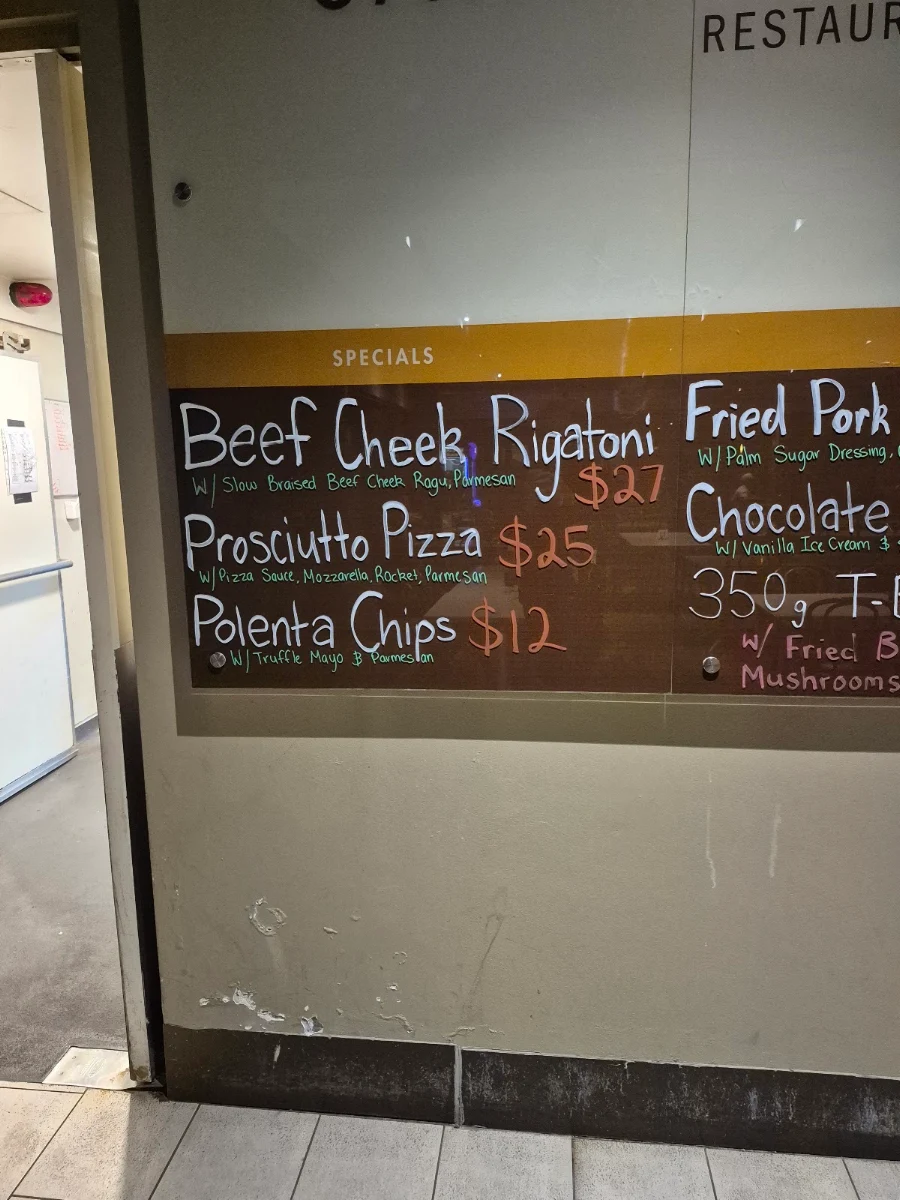 SPECIALS
Beef Cheek Rigatoni
W/ Slow Braised Beef Cheek Ragu, Parmesan
$27
Prosciutto Pizza $25
W/ Pizza Sauce, Mozzarella, Rocket, Parmesan
Polenta Chips $12
W/ Truffle Mayo & Parmesan
Fried Pork
W/ Palm Sugar Dressing,
Chocolate
W/ Vanilla Ice Cream &
350g T-
W/ Fried
Mushrooms